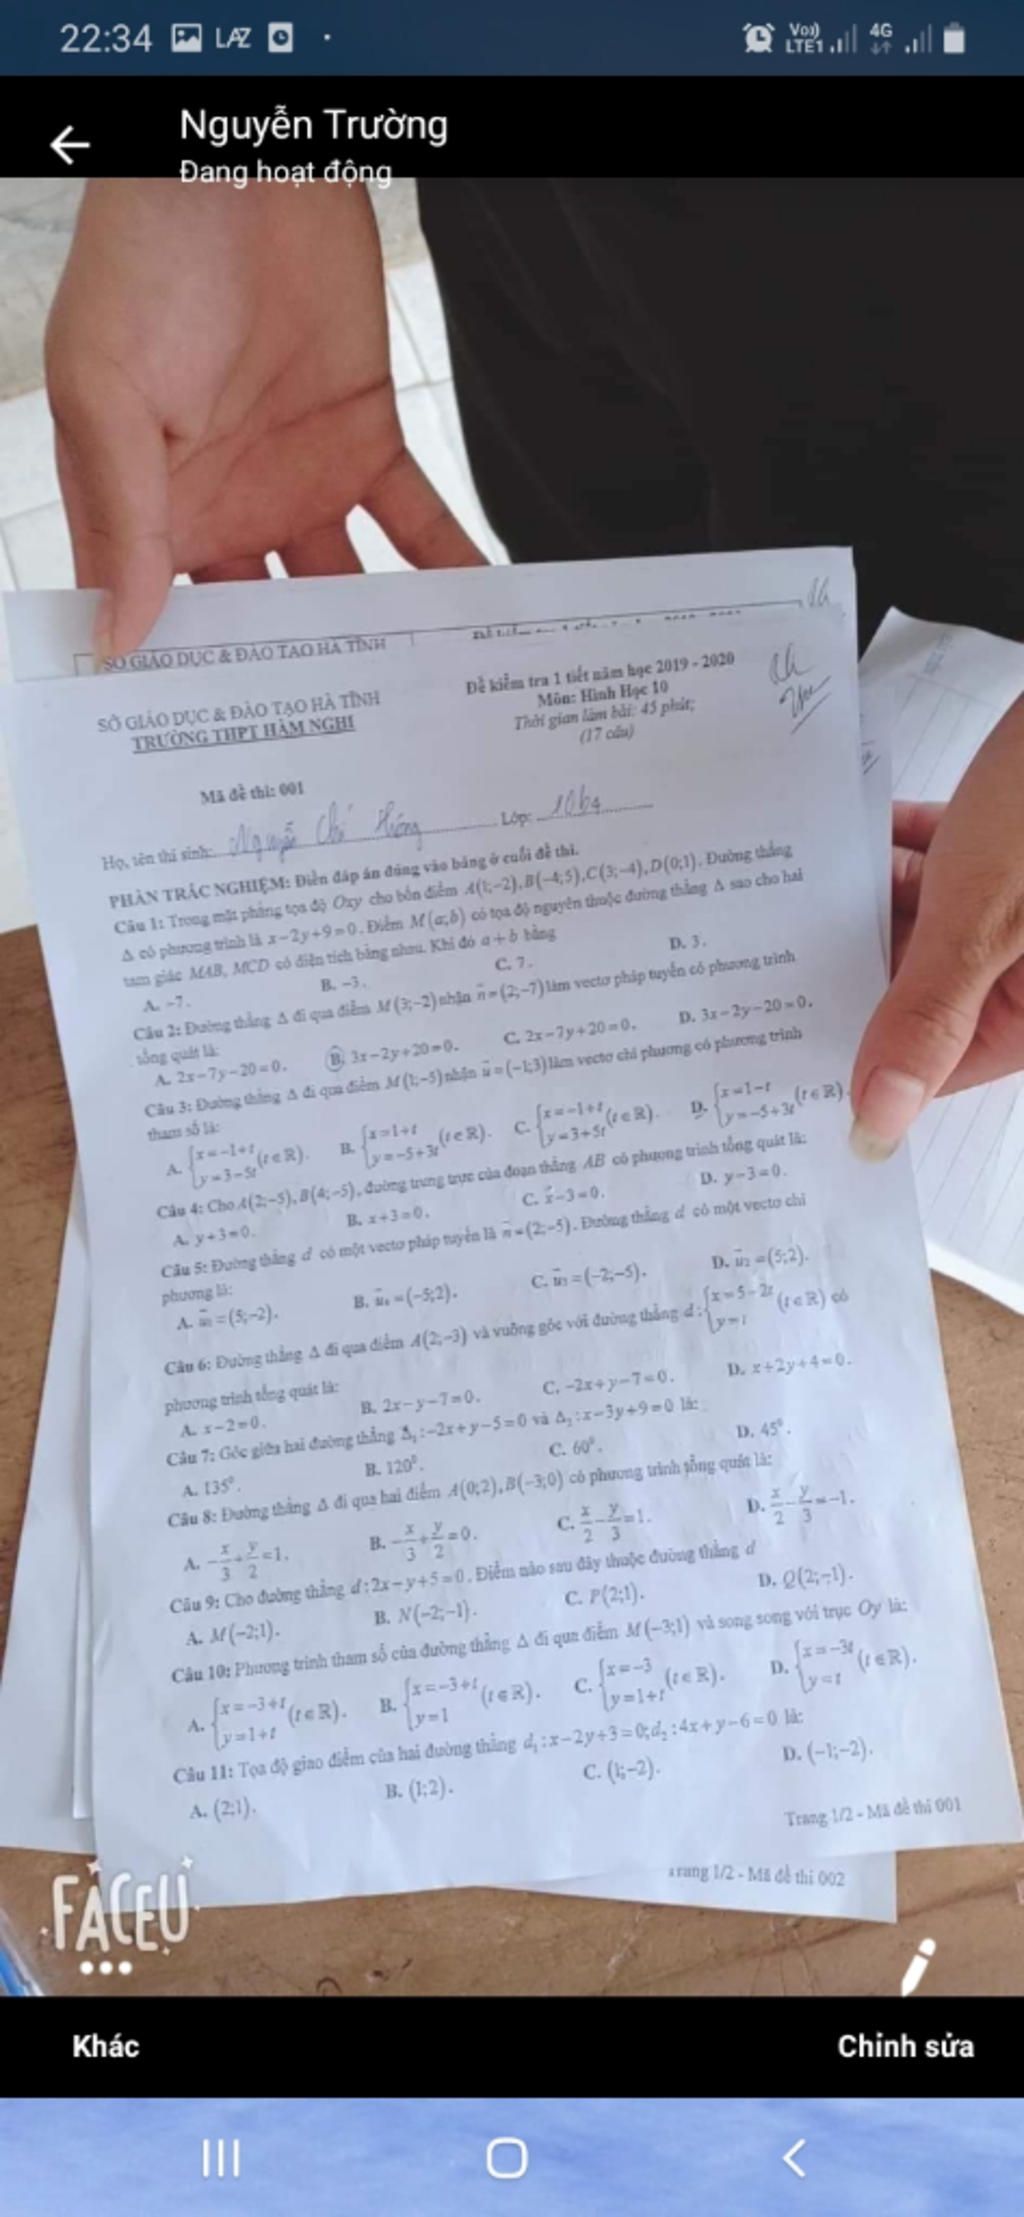 22:34 LAZ
Voı)) LTE1 4G
Nguyễn Trường
Đang hoạt động
SỞ GIÁO DỤC & ĐÀO TẠO HÀ TĨNH
SỞ GIÁO DỤC & ĐÀO TẠO HÀ TĨNH
TRƯỜNG THPT HÀM NGHI
Đề kiểm tra 1 tiết năm học 2019 - 2020
Môn: Hình Học 10
Thời gian làm bài: 45 phút;
(17 câu)
Mã đề thi: 001
Họ, tên thí sinh: Nguyễn Chí Lớp: 10b4
PHẦN TRẮC NGHIỆM: Điền đáp án đúng vào bảng ở cuối đề thi.
Câu 1: Trong mặt phẳng tọa độ Oxy cho bốn điểm A(1;−2), B(−4;5), C(3;−4), D(0;1). Đường thẳng
Δ có phương trình là x−2y+9=0. Điểm M(a;b) có tọa độ nguyên thuộc đường thẳng Δ sao cho hai
tam giác MAB, MCD có diện tích bằng nhau. Khi đó a+b bằng
A. −7. B. −3. C. 7. D. 3.
Câu 2: Đường thẳng Δ đi qua điểm M(3;−2) nhận n=(2;−7) làm vectơ pháp tuyến có phương trình
tổng quát là:
A. 2x−7y−20=0. B. 3x−2y+20=0. C. 2x−7y+20=0. D. 3x−2y−20=0.
Câu 3: Đường thẳng Δ đi qua điểm M(1;−5) nhận u=(−1;3) làm vectơ chỉ phương có phương trình
tham số là:
A. {x=−1+t y=3−5t (t∈ℝ). B. {x=1+t y=−5+3t (t∈ℝ). C. {x=−1+t y=3+5t (t∈ℝ). D. {x=1−t y=−5+3t (t∈ℝ).
Câu 4: Cho A(2;−5), B(4;−5), đường trung trực của đoạn thẳng AB có phương trình tổng quát là:
A. y+3=0. B. x+3=0. C. x−3=0. D. y−3=0.
Câu 5: Đường thẳng d có một vectơ pháp tuyến là n=(2;−5). Đường thẳng d có một vectơ chỉ
phương là:
A. u₁=(5;−2). B. u₄=(−5;2). C. u₃=(−2;−5). D. u₂=(5;2).
Câu 6: Đường thẳng Δ đi qua điểm A(2;−3) và vuông góc với đường thẳng d: {x=5−2t y=t (t∈ℝ) có
phương trình tổng quát là:
A. x−2=0. B. 2x−y−7=0. C. −2x+y−7=0. D. x+2y+4=0.
Câu 7: Góc giữa hai đường thẳng Δ₁:−2x+y−5=0 và Δ₂:x−3y+9=0 là:
A. 135⁰. B. 120⁰. C. 60⁰. D. 45⁰.
Câu 8: Đường thẳng Δ đi qua hai điểm A(0;2), B(−3;0) có phương trình tổng quát là:
A. −x/3+y/2=1. B. −x/3+y/2=0. C. x/2−y/3=1. D. x/2−y/3=−1.
Câu 9: Cho đường thẳng d:2x−y+5=0. Điểm nào sau đây thuộc đường thẳng d
A. M(−2;1). B. N(−2;−1). C. P(2;1). D. Q(2;−1).
Câu 10: Phương trình tham số của đường thẳng Δ đi qua điểm M(−3;1) và song song với trục Oy là:
A. {x=−3+t y=1+t (t∈ℝ). B. {x=−3+t y=1 (t∈ℝ). C. {x=−3 y=1+t (t∈ℝ). D. {x=−3t y=t (t∈ℝ).
Câu 11: Tọa độ giao điểm của hai đường thẳng d₁:x−2y+3=0; d₂:4x+y−6=0 là:
A. (2;1). B. (1;2). C. (1;−2). D. (−1;−2).
Trang 1/2 - Mã đề thi 001
Trang 1/2 - Mã đề thi 002
FACEU
Khác
Chỉnh sửa